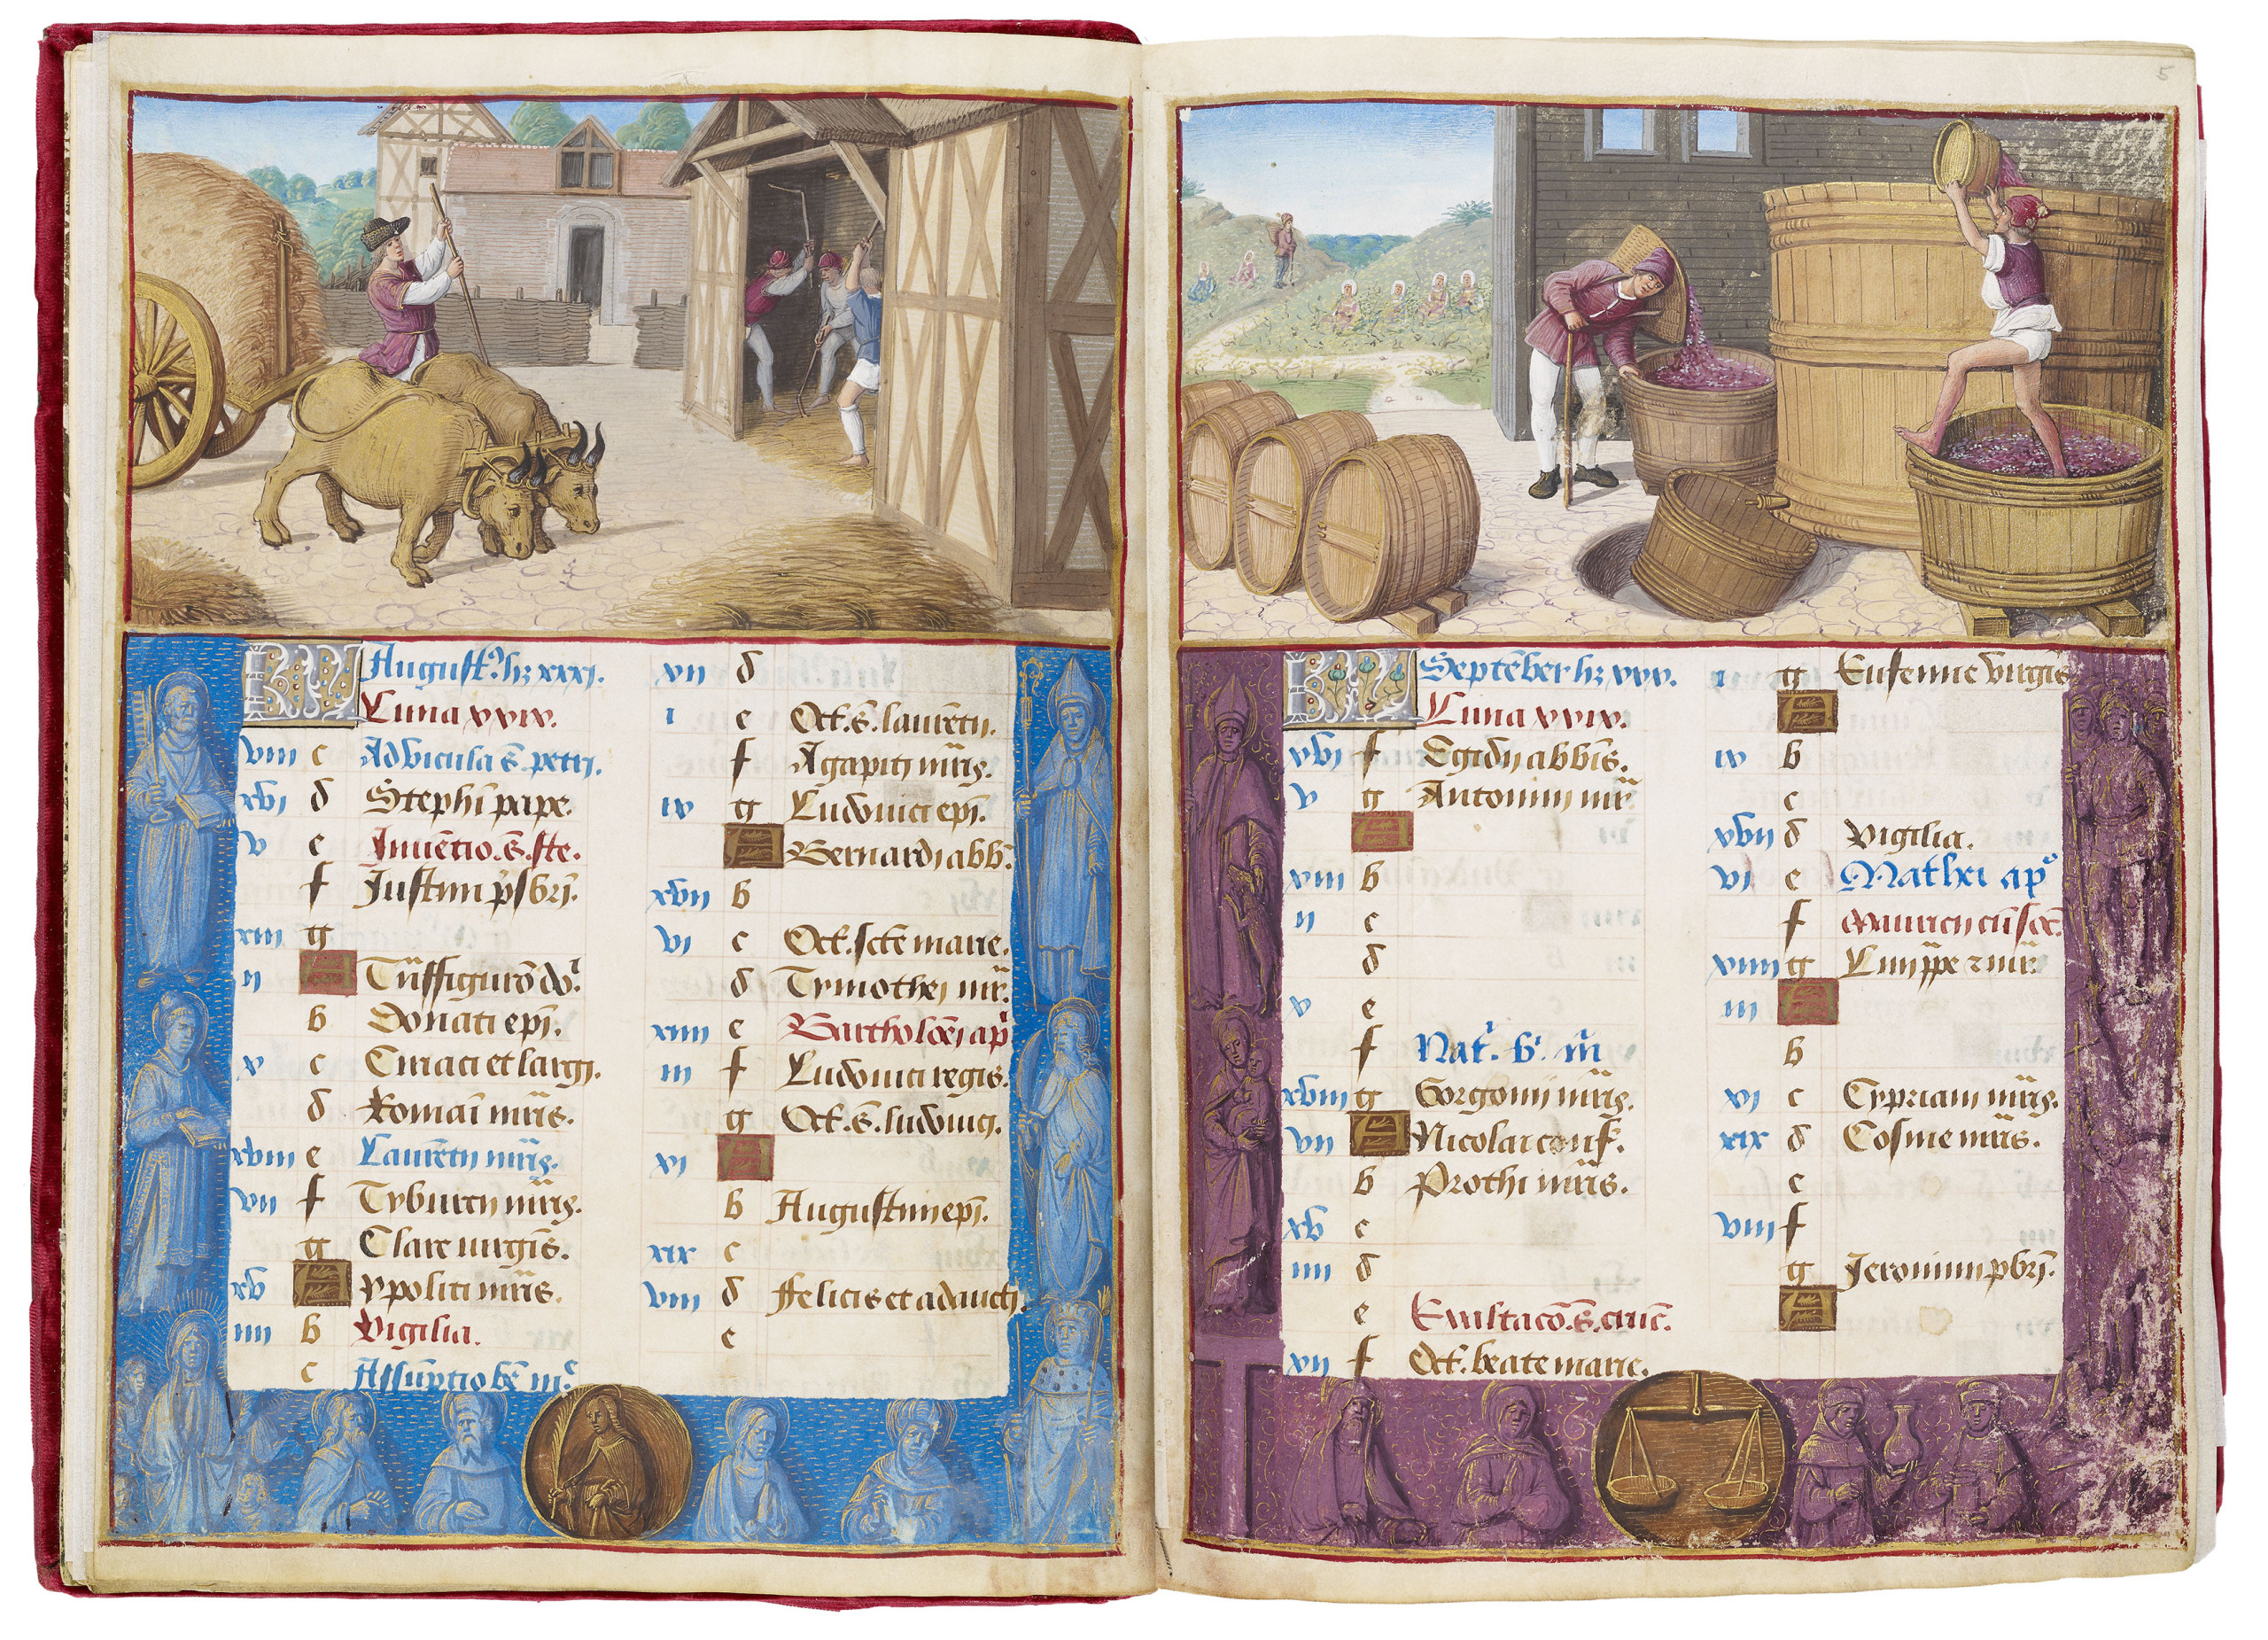 KL August⁹ hꝫ xxxi.
Luna xxix.
viii c Advincula s̄. petri.
xvi d Stephi pape.
v e Invētio. s̄. ste.
f Justini p̄sbri.
xiii g
ii A Trāsfiguro do.
b Donati epi.
x c Ciriaci et largi.
d Romai mris.
xviii e Laurētii mris.
vii f Tyburcii mris.
g Clare virgis.
xv A Ypoliti mris.
iiii b Vigilia.
c Assūptio be m.
xii d
i e Oct. s̄. laurētii.
f Agapiti mris.
ix g Ludovici epi.
A Bernardi abb.
xvii b
vi c Oct. scte marie.
d Tymothei mr.
xiiii e Bartholoei ap
iii f Ludovici regis.
g Oct. s̄. ludovici.
xi A
b Augustini epi.
xix c
viii d Felicis et adaucti.
e
5
KL Septēber hꝫ xxx.
Luna xxix.
xvi f Egidii abbis.
v g Antonini mr
A
xiii b
ii c
d
x e
f Nat. b. m
xviii g Gorgonii mris.
vii A Nicolai conf.
b Prothi mris.
xv c
iiii d
e Exaltaco. s̄. cruc.
xii f Oct. beate marie.
i g Eufemie virgis
A
ix b
c
xvii d Vigilia.
vi e Mathei ap
f Mauricii cū soc.
xiiii g
iii A
b
xi c Cypriani mris.
xix d Cosme mris.
e
viii f
g Jeronimi pbri.
A